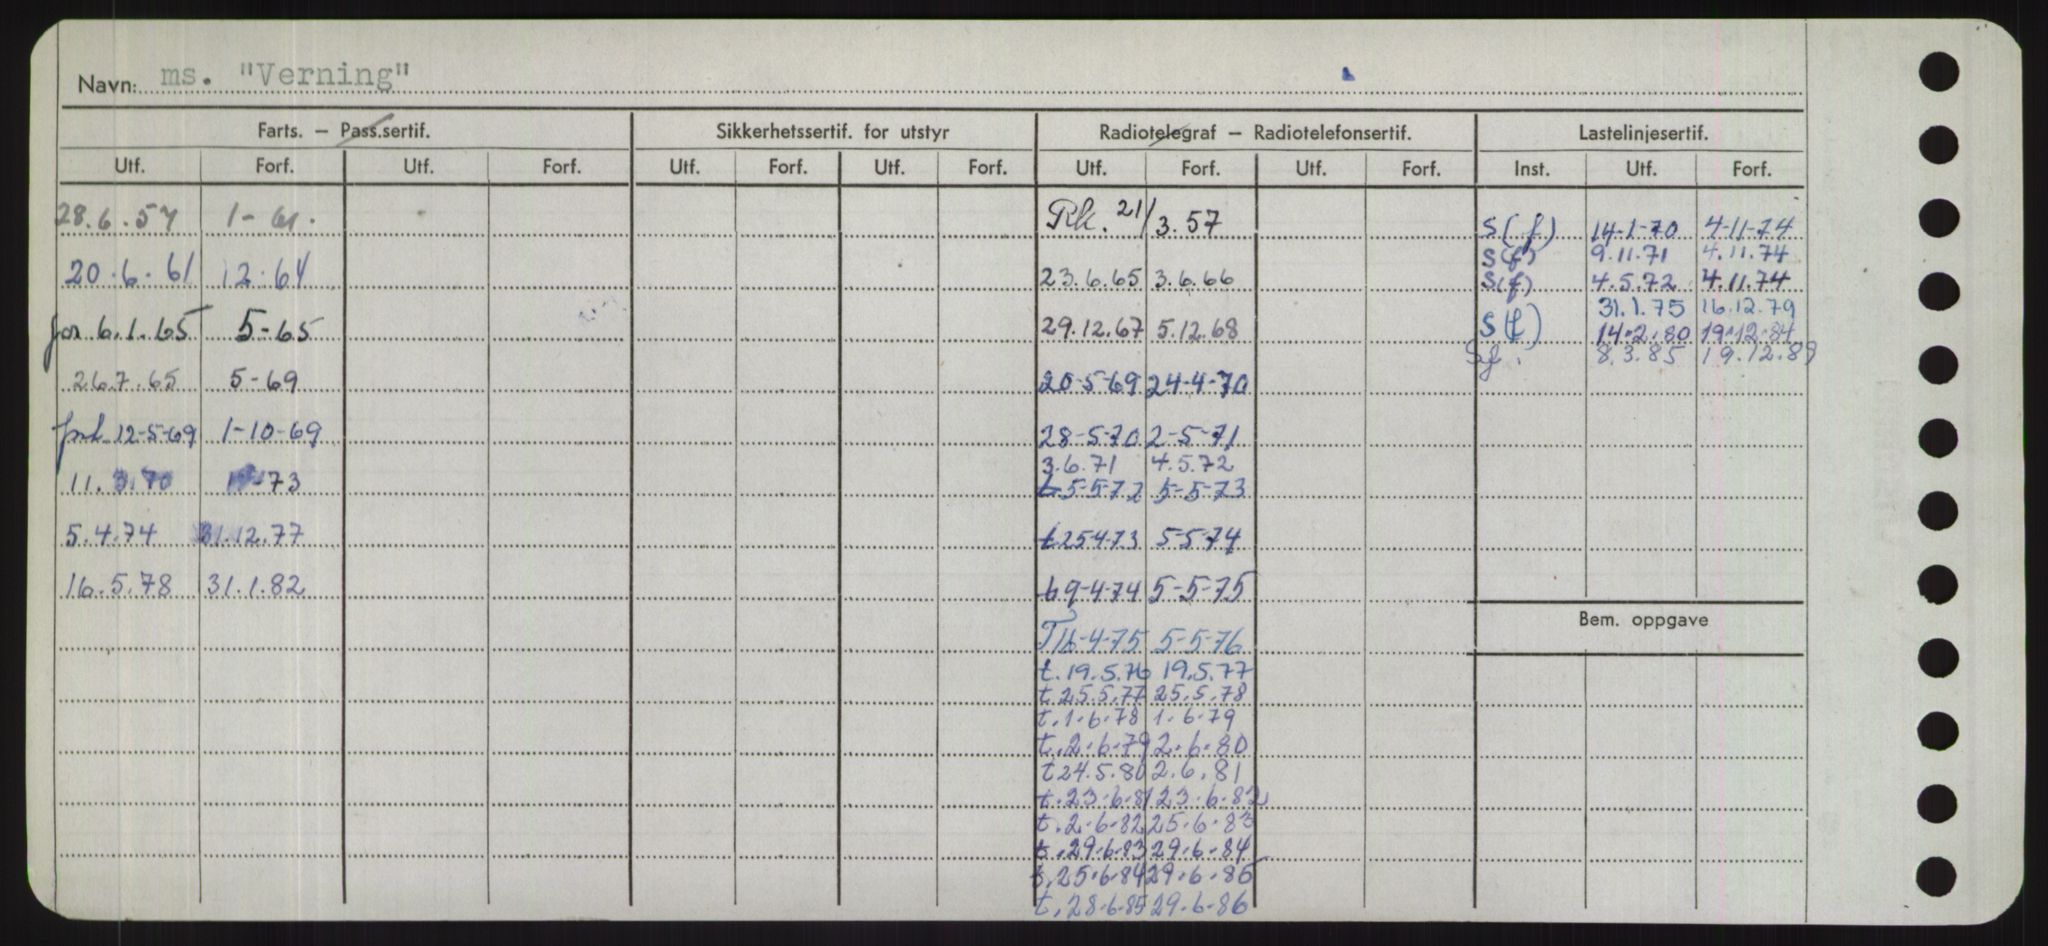 Navn: ms. "Verning"
Farts. – Pass.sertif. Sikkerhetssertif. for utstyr Radiotelegraf – Radiotelefonsertif. Lastelinjesertif.
Utf. Forf. Utf. Forf. Utf. Forf. Utf. Forf. Utf. Forf. Utf. Forf. Inst. Utf. Forf.
28.6.57 1-61.
20.6.61 12.64
for 6.1.65 5-65
26.7.65 5-69
forl 12-5-69 1-10-69
11.3.70 73
5.4.74 31.12.77
16.5.78 31.1.82
Rk. 21/3.57
23.6.65 3.6.66
29.12.67 5.12.68
20-5-69 24-4-70
28-5-70 2-5-71
3.6.71 4.5.72
t 5-5-72 5-5-73
t 25-4-73 5-5-74
t 9-4-74 5-5-75
T 16-4-75 5-5-76
t. 19.5.76 19.5.77
t. 25.5.77 25.5.78
t. 1.6.78 1.6.79
t. 2.6.79 2.6.80
t 24.5.80 2.6.81
t. 23.6.81 23.6.82
t. 2.6.82 25.6.83
t. 29.6.83 29.6.84
t. 25.6.84 29.6.85
t. 28.6.85 29.6.86
S(f) 14-1-70 4-11-74
S(f) 9.11.71 4.11.74
S(f) 4.5.72 4.11.74
31.1.75 16.12.79
S(f) 14.2.80 19.12.84
Sf. 8.3.85 19.12.89
Bem. oppgave